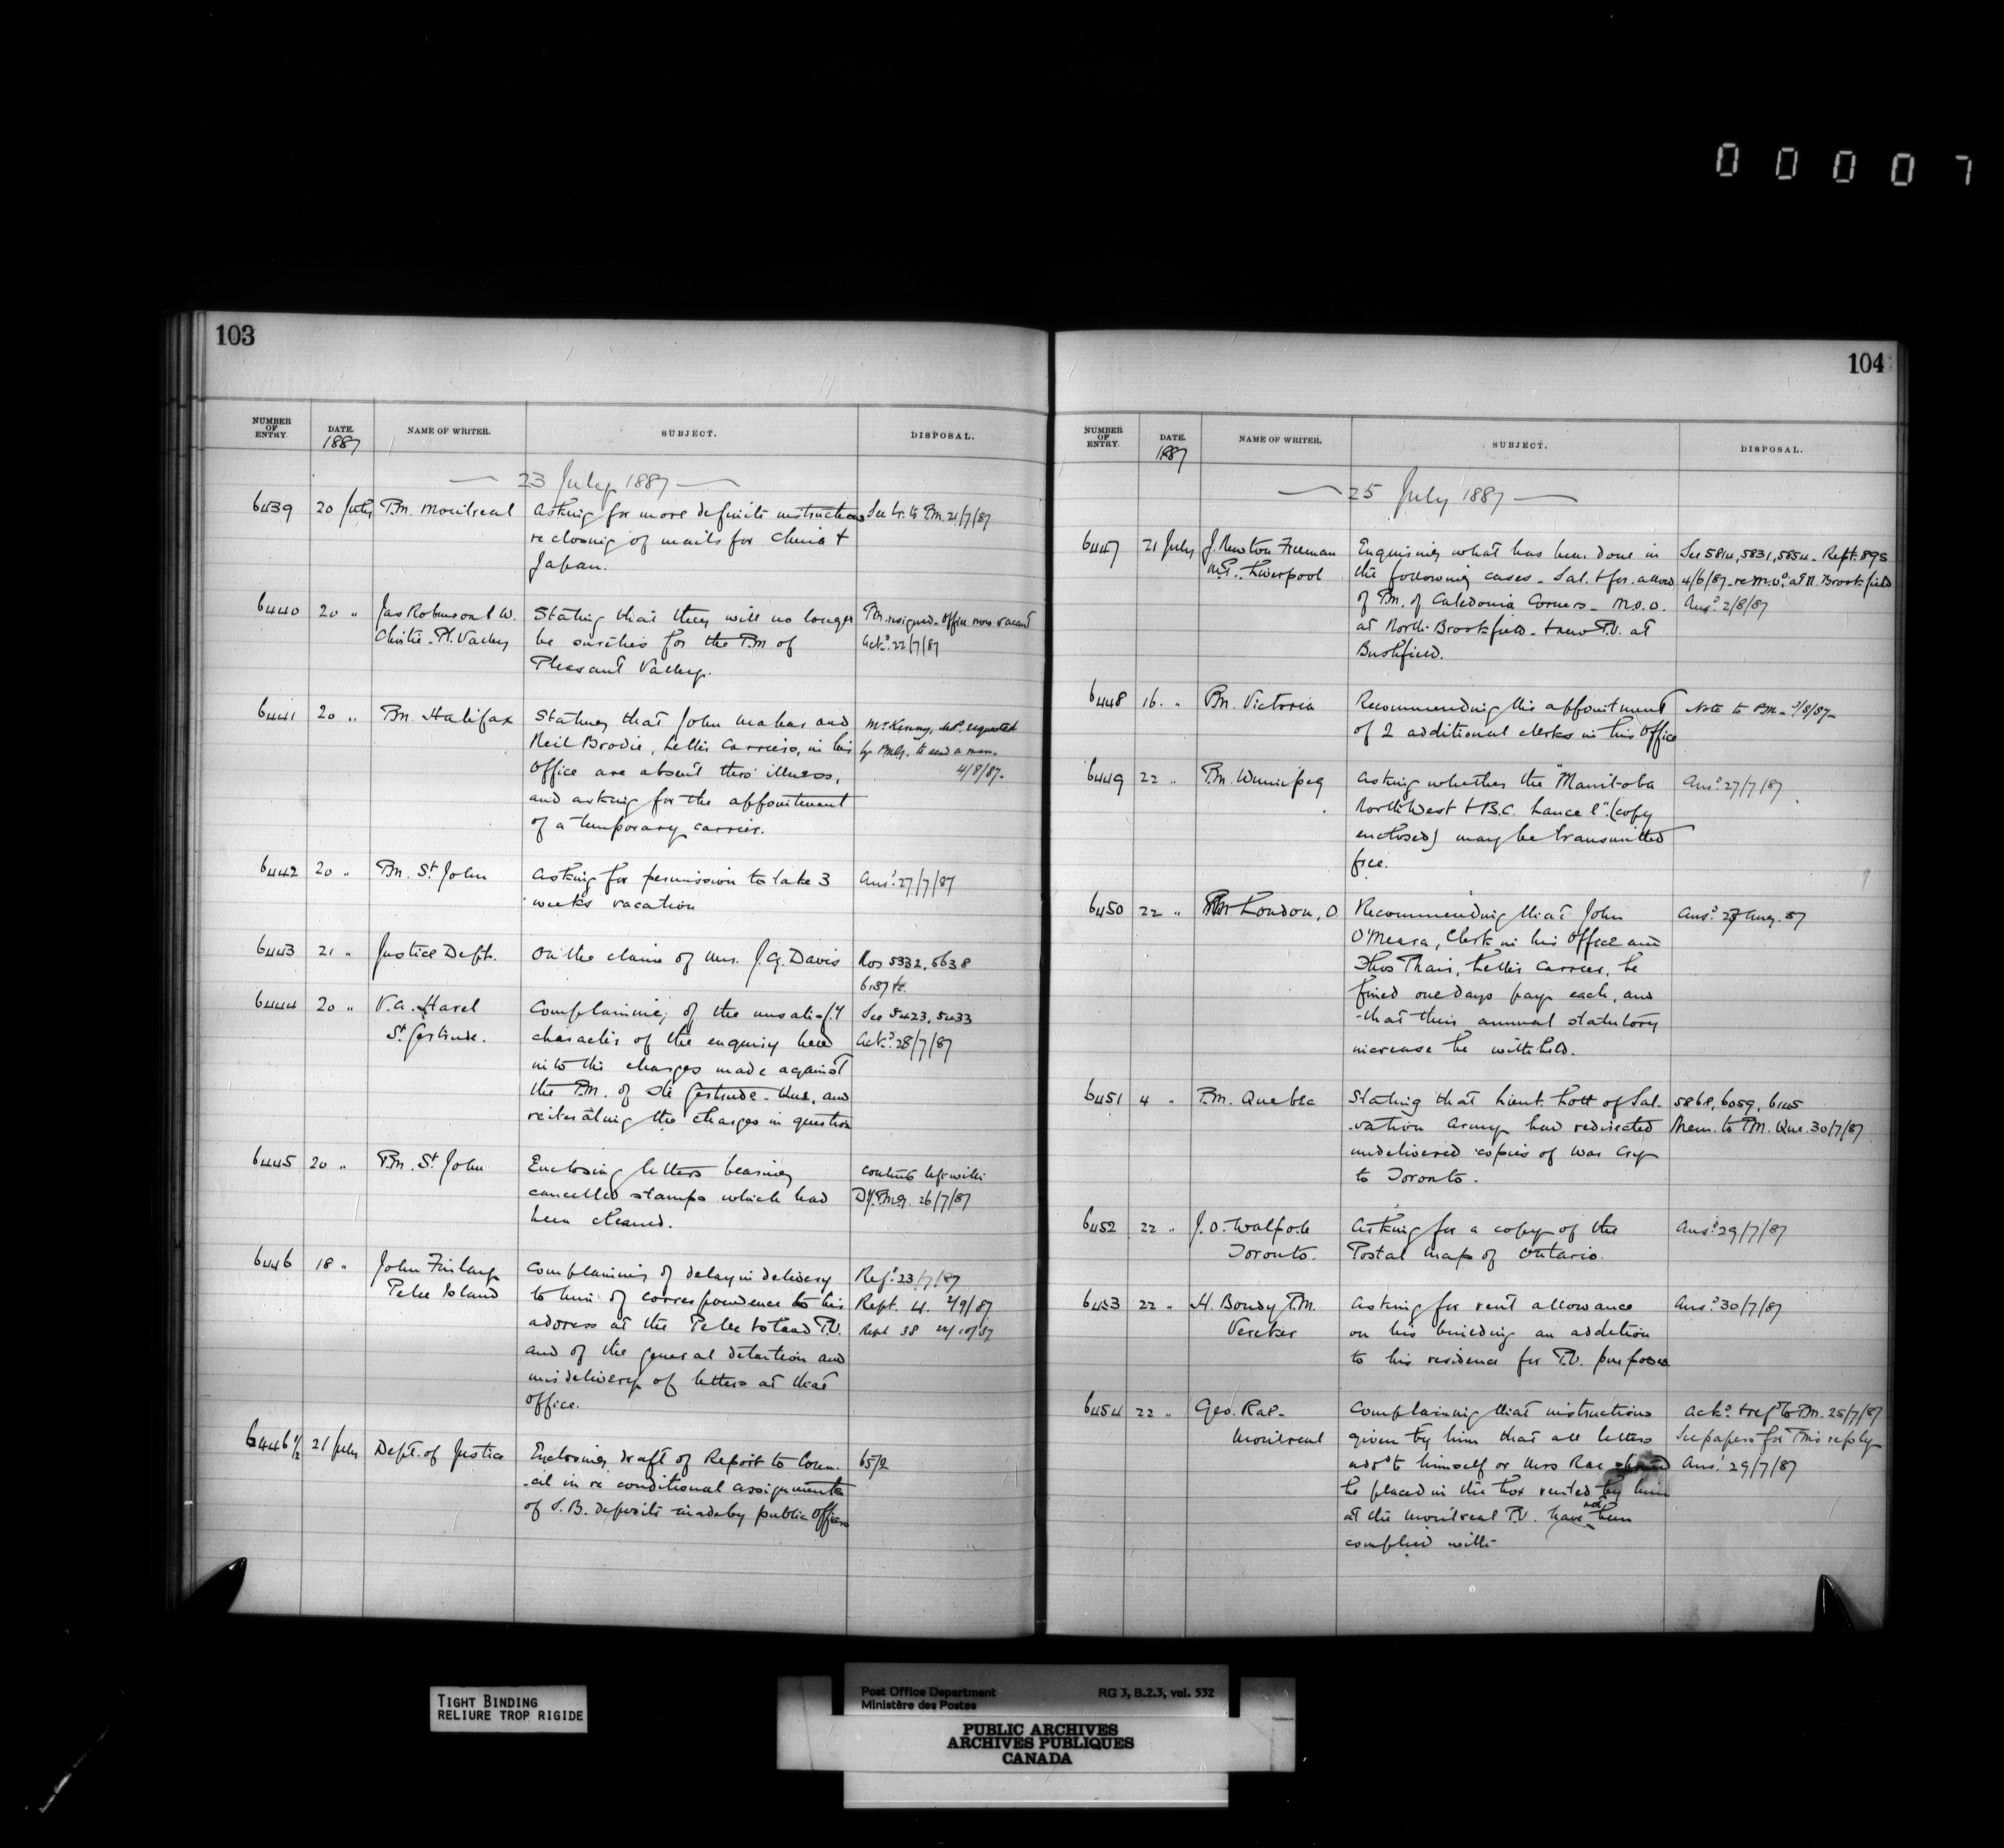 00007
103
NUMBER OF ENTRY. DATE. 1887 NAME OF WRITER. SUBJECT. DISPOSAL.
23 July 1887
6439 20 July P.M. Montreal Asking for more definite instructions See Lr. to P.M. 21/7/87
re closing of mails for China &
Japan.
6440 20 " Jas Robinson & W. Stating that they will no longer P.M. resigned. Office now vacant
Pl. Valley be sureties for the P.M. of Ackd. 22/7/87
Pleasant Valley.
6441 20 " P.M. Halifax Stating that John Mahar and McKenny, M.P. requested
Neil Brodie, Letter Carriers, in his by P.M.G. to send a man.
Office are absent thro' illness, 4/8/87.
and asking for the appointment
of a temporary carrier.
6442 20 " P.M. St. John Asking for permission to take 3 Ansd. 27/7/87
weeks vacation
6443 21 " Justice Dept. On the claim of Mrs. J.G. Davis Nos 5332, 5638
6444 20 " V.A. Harel Complaining of the unsatisfy See 5423, 5433
St. Gertrude. character of the enquiry held Ackd. 28/7/87
into the charges made against
the P.M. of Ste Gertrude - Que, and
reiterating the charges in question
6445 20 " P.M. St. John Enclosing letters bearing contents left with
cancelled stamps which had Dy. P.M.G. 26/7/87
been cleaned.
6446 18 " John Finlay Complaining of delay in delivery Refd. 23/7/87
Pelee Island to him of correspondence to his Rept. 4. 2/9/87
address at the Pelee Island P.O. Rept 38
and of the general detention and
misdelivery of letters at that
office.
6446 1/2 21 July Dept. of Justice Enclosing draft of Report to Coun- 6572
-cil in re conditional assignments
of S.B. deposits made by public Officers
104
NUMBER OF ENTRY. DATE. 1887 NAME OF WRITER. SUBJECT. DISPOSAL.
25 July 1887
6447 21 July J. Newton Freeman Enquiring what has been done in See 5814, 5831, 5854. Rept. 895
Liverpool the following cases - Sal. & for. allow. 4/6/87 - re M.O. at N. Brookfield
of P.M. of Caledonia Corners - M.O.O. Ansd. 2/8/87
at North Brookfield - & new P.O. at
Bushfield.
6448 16. " P.M. Victoria Recommending the appointment Note to P.M. /8/87
of 2 additional clerks in his Office
6449 22 " P.M. Winnipeg Asking whether the "Manitoba Ansd. 27/7/87
North West & B.C. Lancet" (copy
enclosed) may be transmitted
free.
6450 22 " P.M. London, O Recommending that John Ansd. 27 Aug. 87
O'Meara, Clerk in his Office and
Thos Thair, Letter Carrier, be
fined one days pay each, and
that their annual statutory
increase be withheld.
6451 4 " P.M. Quebec Stating that Lieut. Lott of Sal- 5868, 6059, 6145
-vation Army had redirected Mem. to P.M. Que. 30/7/87
undelivered copies of War Cry
to Toronto.
6452 22 " J.O. Walpole Asking for a copy of the Ansd. 29/7/87
Toronto. Postal Map of Ontario.
6453 22 " H. Bondy P.M. Asking for rent allowance Ansd. 30/7/87
Vereker on his building an addition
to his residence for P.O. purposes
6454 22 " Geo. Rae - Complaining that instructions Ackd. & refd. to P.M. 25/7/87
Montreal given by him that all letters See papers for P.M's reply
add'd to himself or Mrs Rae should Ansd. 29/7/87
be placed in the box rented by him
at the Montreal P.O. have not been
complied with
TIGHT BINDING
RELIURE TROP RIGIDE
Post Office Department RG 3, B.2.3, vol. 532
Ministère des Postes
PUBLIC ARCHIVES
ARCHIVES PUBLIQUES
CANADA